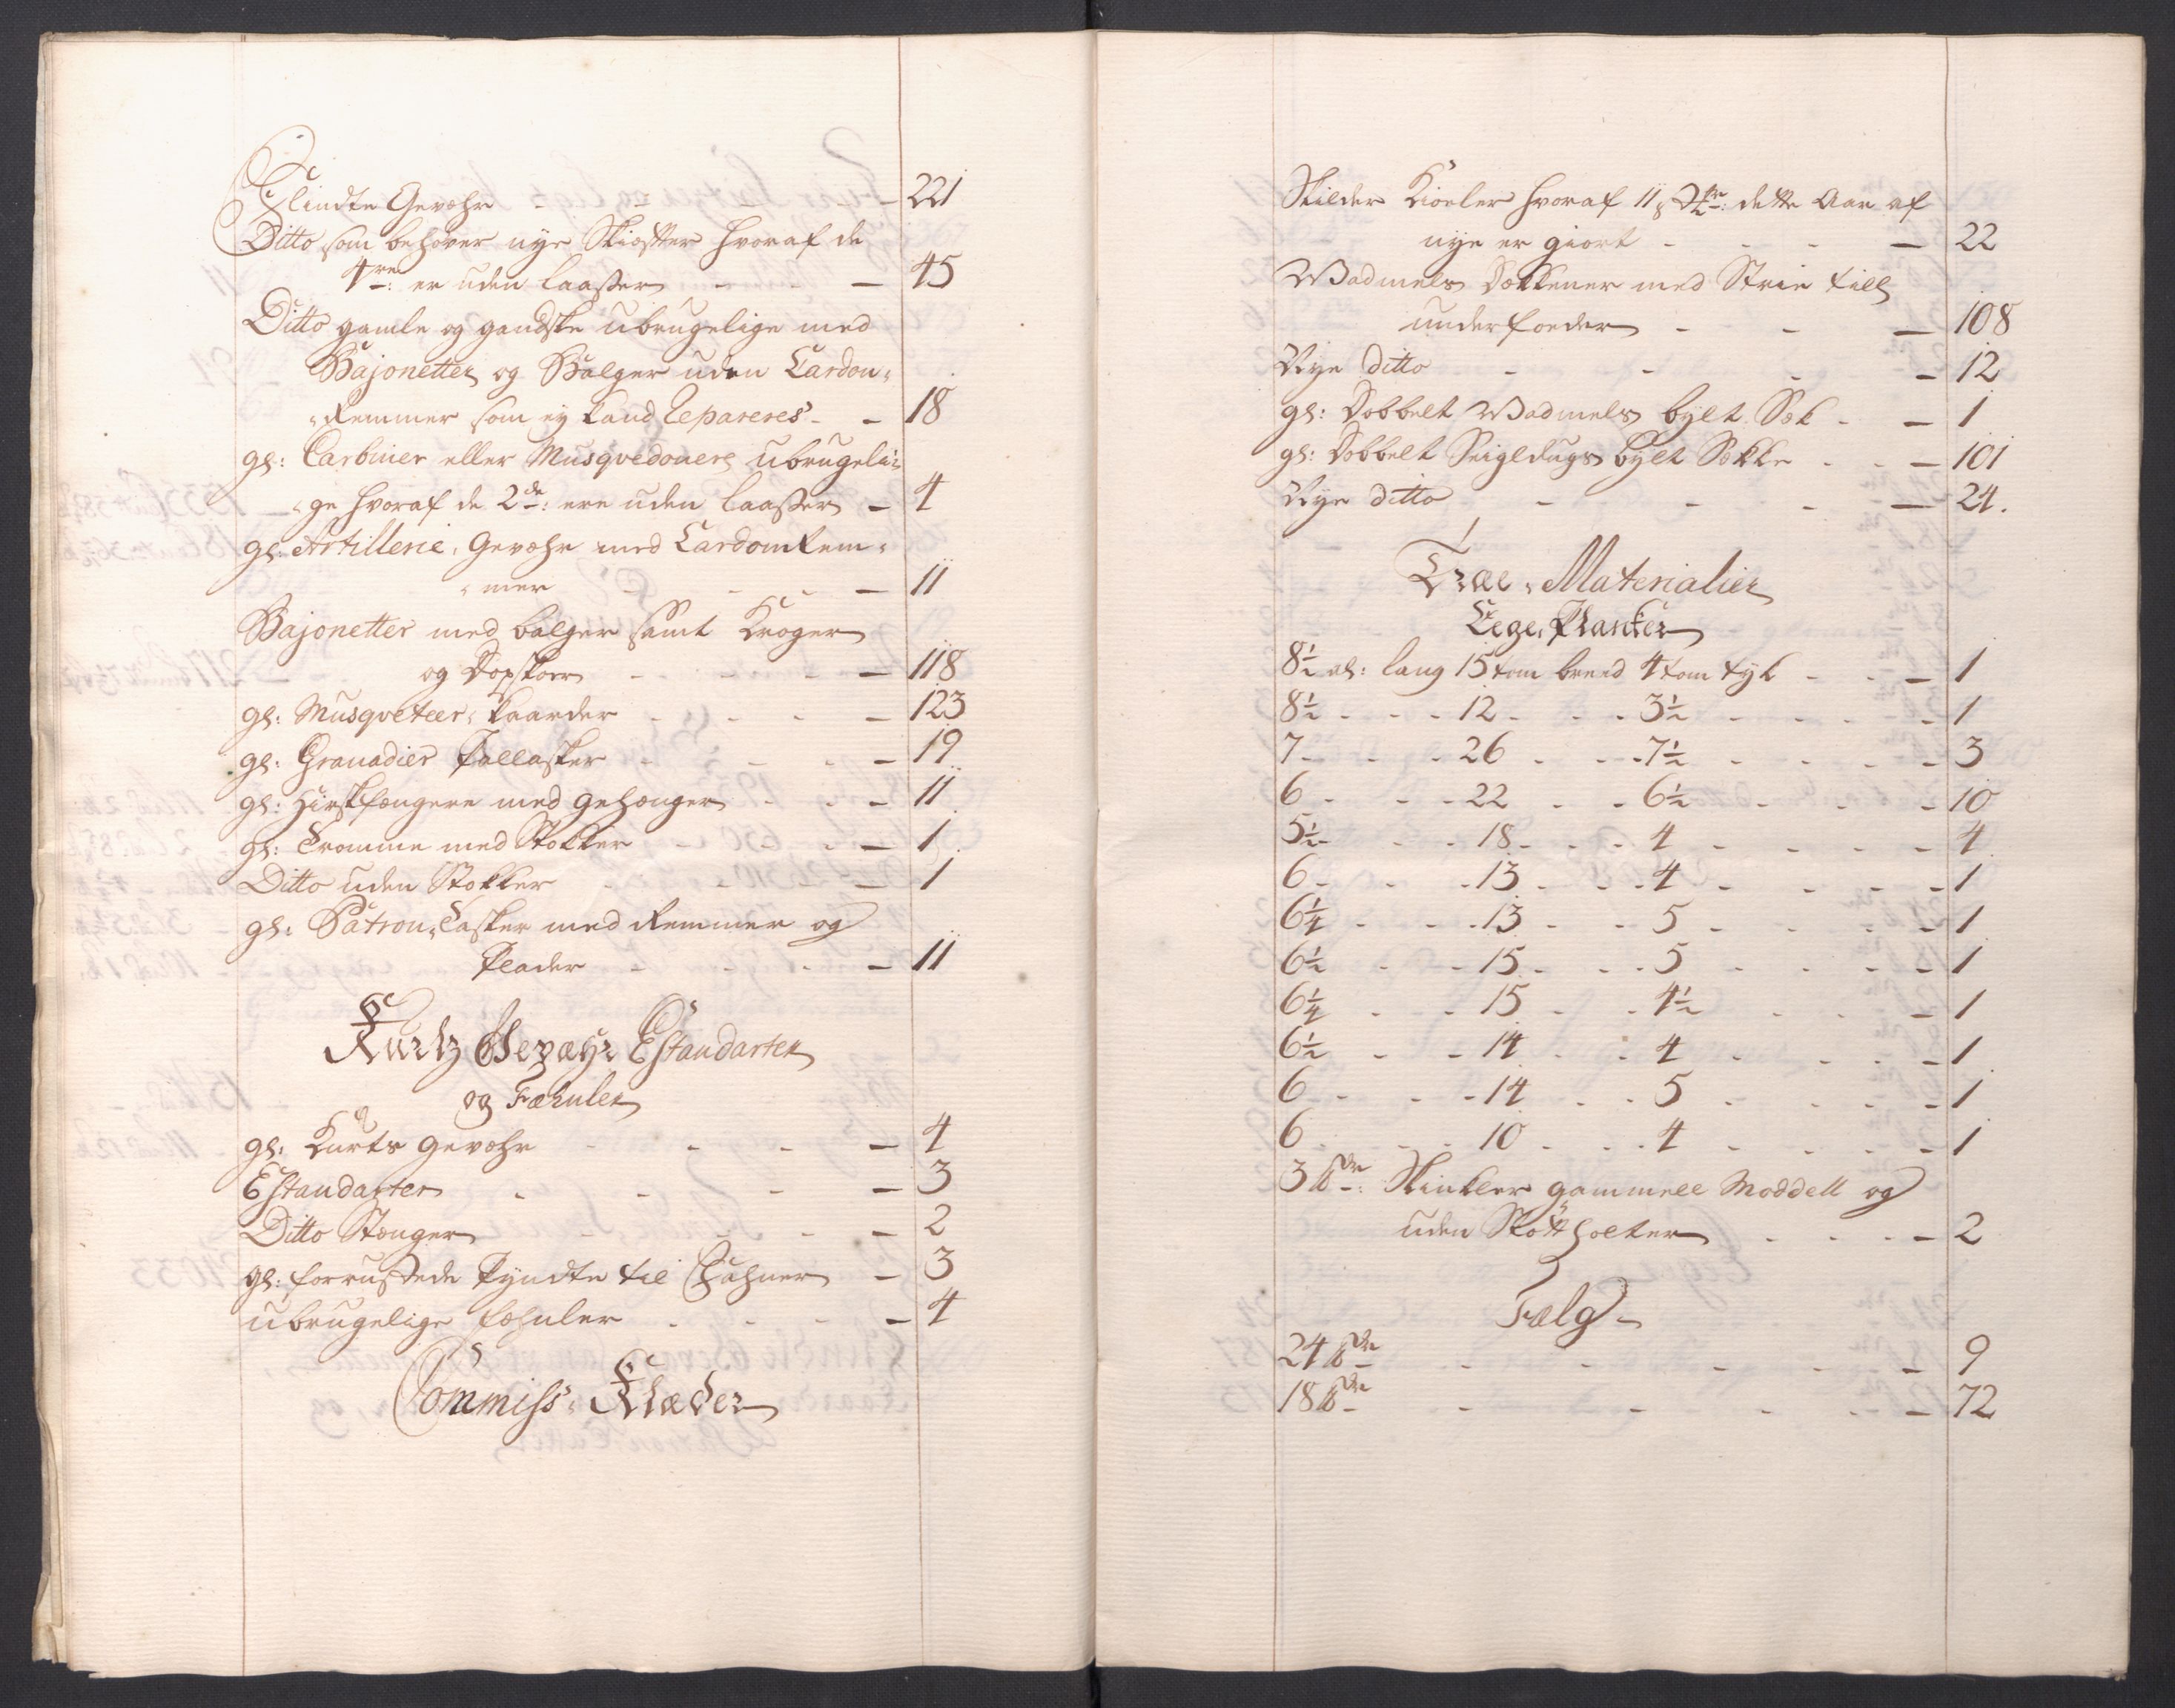 Flindte Gevæhr - - - - 221
Ditto som behøver nye Skiæfter hvoraf de
4re: er uden Laaßer - - - 45
Ditto gamle og gandske ubrugelige med
Bajonetter og Balger uden Cardon-
Remmer som ey kand Repareres - - 18
gl: Carbiner eller Musqvedonere ubrugeli-
ge hvoraf de 2de: ere uden Laaßer - 4
gl: Artillerie, Gevæhr med Cardom Rem-
mer - - - - 11
Bajonetter med balger samt Kroger
og Dopskoer - - - - 118
gl: Musqveteer, Kaarder - - - - 123
gl: Granadier Pallasker - - - - 19
gl: Hirskfængere med Gehænger - - - 11
gl: Tromme med Stokker - - - - 1
Ditto uden Stokker - - - - 1
gl: Patron, Tasker med Remmer og
Plader - - - - 11
Kurtz Gevæhr Estandarter
og Fæhnler
gl: Kurts Gevæhr - - - - 4
Estandarter - - - - 3
Ditto Stænger - - - - 2
gl: forrustede Pyndte til Fahner - 3
ubrugelige Fæhnler - - - - 4
Commiss, Klæder
Skilder Kioeler hvoraf 11 dette Aar af
nye er giort - - - - 22
Wadmels Dækkener med Strie till
underfoeder - - - 108
Nye ditto - - - - 12
gl: Dobbelt Wadmels bylt Sæk - - 1
gl: Dobbelt Seigldugs bylt Sække - - - 101
Nye ditto - - - - 24.
Træe, Materialier
Eege, Plancker
8½ al: lang 15 tom breed 4 tom tyk - - - 1
8½ - - - 12 - - - 3½ - - - - 1
7 - - - 26 - - - 7½ - - - - 3
6 - - - 22 - - - 6½ - - - - 10
5½ - - - 18 - - - 4 - - - - 4
6 - - - 13 - - - 4 - - - - 1
6¼ - - - 13 - - - 5 - - - - 1
6½ - - - 15 - - - 5 - - - - 1
6¼ - - - 15 - - - 4½ - - - - 1
6½ - - - 14 - - - 4 - - - - 1
6 - - - 14 - - - 5 - - - - 1
6 - - - 10 - - - 4 - - - - 1
3 ℔de: Skinkler gammell Moddell og
uden Støttholter - - - - 2
Fælg
24 ℔de - - - - 9
18 ℔de - - - - 72